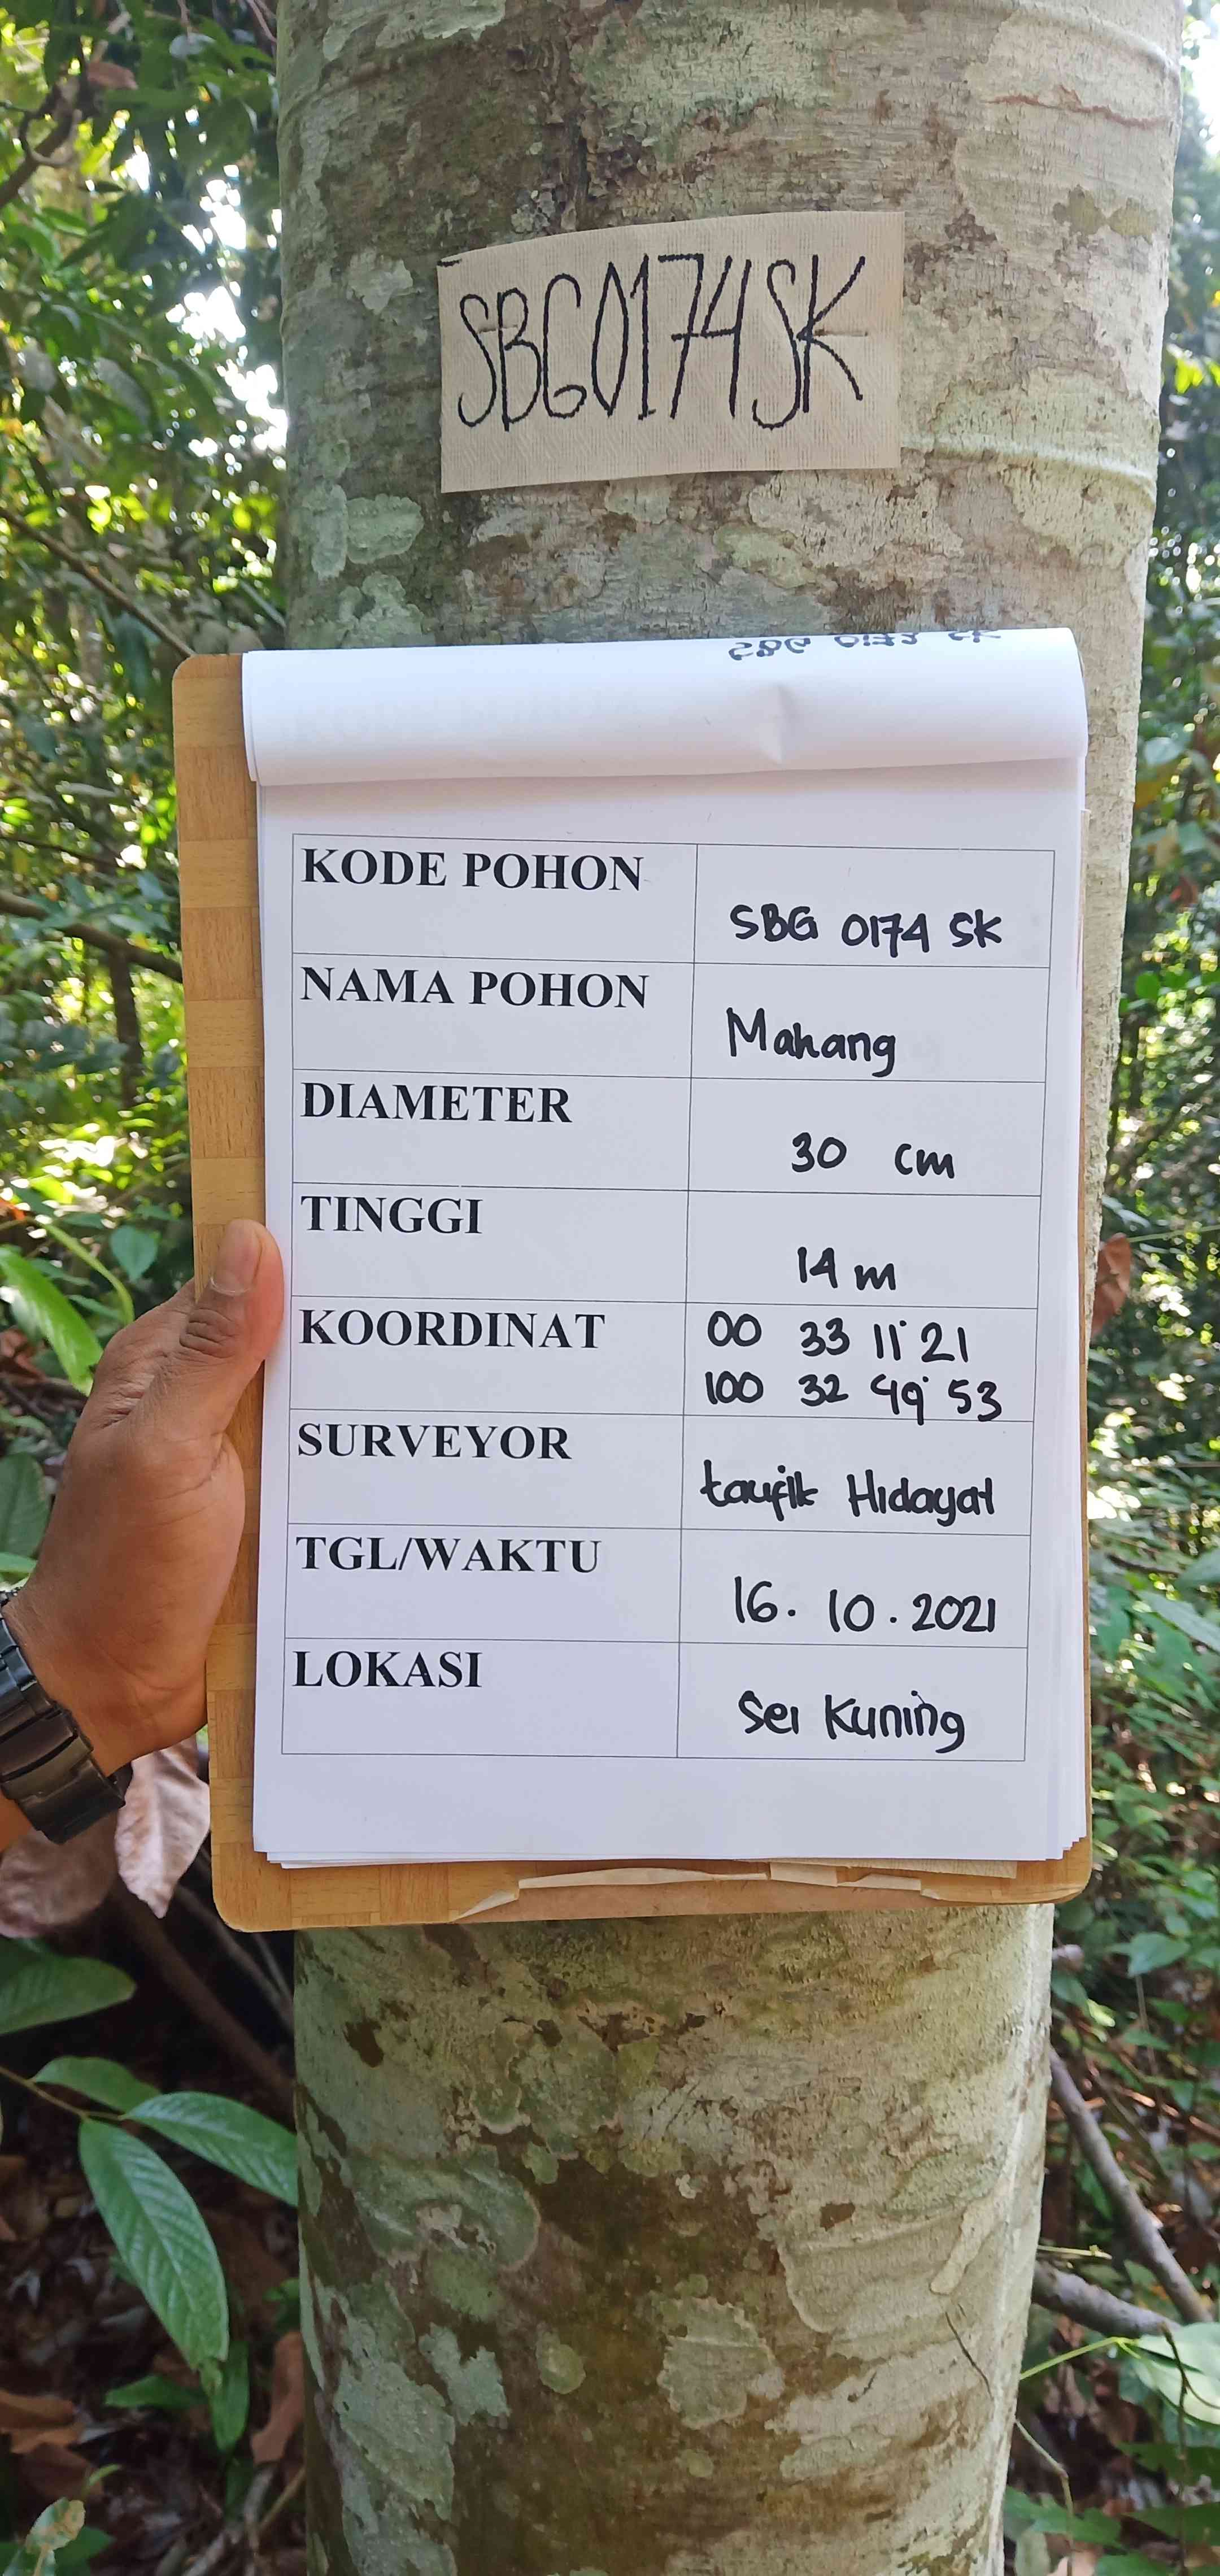 SBG0174SK
KODE POHON
SBG 0174 SK
NAMA POHON
Mahang
DIAMETER
30 cm
TINGGI
14 m
KOORDINAT
00 33 11 21
100 32 49 53
SURVEYOR
taufik Hidayat
TGL/WAKTU
16. 10. 2021
LOKASI
Sei Kuning